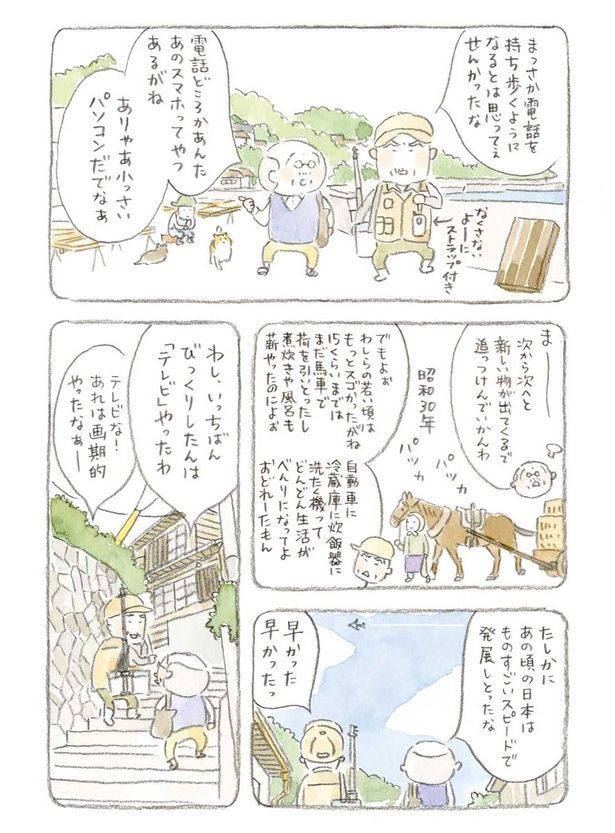 まっさか電話を
持ち歩くように
なるとは思ってぇ
せんかったな
なくさない
よーに
ストラップ付き
電話どころかあんた
あのスマホってやつ
あるがね
ありゃあ小っさい
パソコンだでなぁ
まー
次から次へと
新しい物が出てくるで
追っつけんでいかんわ
昭和30年
パッカ
パッカ
でもよぉ
わしらの若い頃は
もっとスゴかったがね
15くらいまでは
まだ馬車で
荷を引いとったし
煮炊きや風呂も
薪やったのによぉ
自動車に
冷蔵庫に炊飯器に
洗たく機って
どんどん生活が
べんりになってよ
おどれーたもん
たしかに
あの頃の日本は
ものすごいスピードで
発展しとったな
早かった
早かったっ
わし、いっちばん
びっくりしたんは
「テレビ」やったわ
テレビな!
あれは画期的
やったなぁー